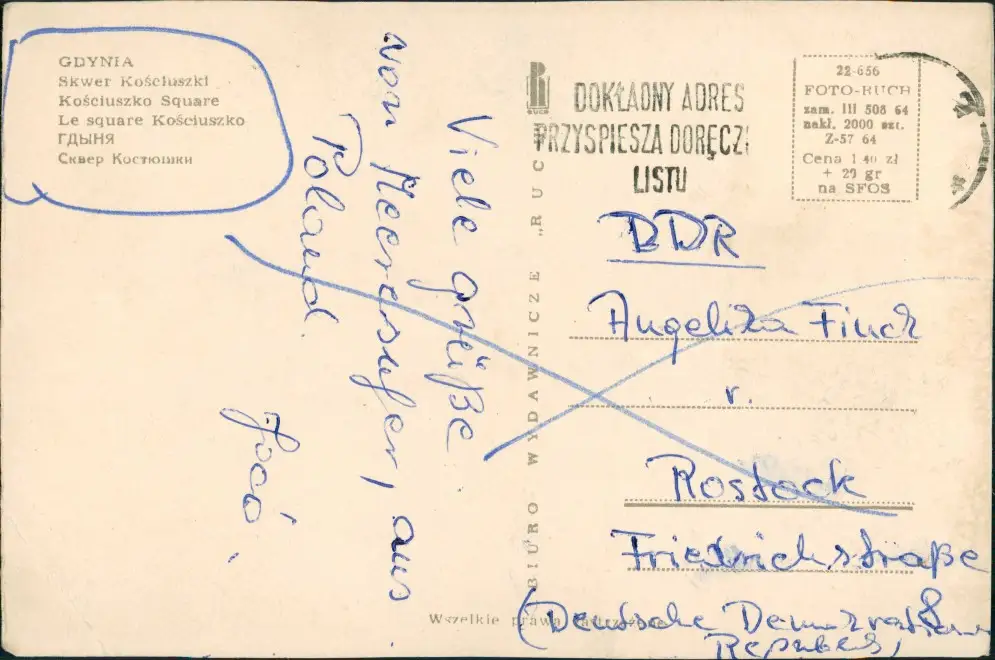 GDYNIA
Skwer Kościuszki
Kościuszko Square
Le square Kościuszko
ГДЫНЯ
Сквер Костюшки
Viele grüße
von Meeresufer, aus
Poland.
"RUCH"
BIURO WYDAWNICZE
Wszelkie prawa zastrzeżone
DOKŁADNY ADRES
PRZYSPIESZA DORĘCZ
LISTU
22-656
FOTO-RUCH
zam. III 508 64
nakł. 2000 szt.
Z-57 64
Cena 1 40 zł
+ 20 gr
na SFOS
DDR
Angelika Finck
r.
Rostock
Friedrichstraße
8
(Deutsche Demokratische
Republik)